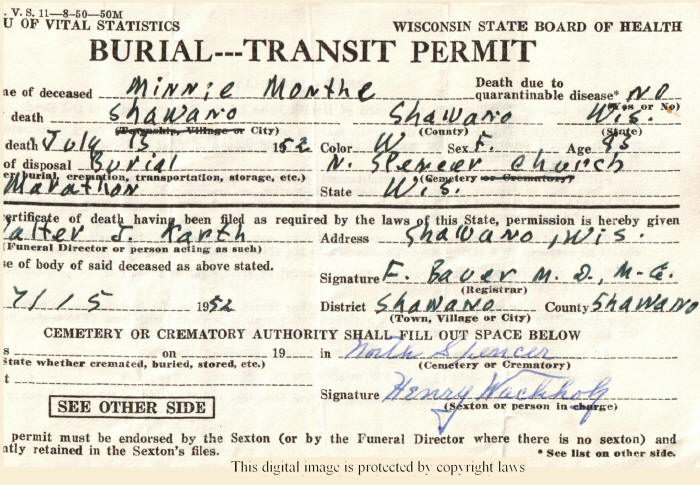 . V. S. 11—8-50—50M
U OF VITAL STATISTICS WISCONSIN STATE BOARD OF HEALTH
BURIAL---TRANSIT PERMIT
me of deceased Minnie Monthe Death due to quarantinable disease* No (Yes or No)
death Shawano Shawano Wis.
(Township, Village or City) (County) (State)
death July 15 1952 Color W Sex F. Age 85
of disposal Burial N. Spencer Church
er burial, cremation, transportation, storage, etc.) (Cemetery or Crematory)
Marathon State Wis.
ertificate of death having been filed as required by the laws of this State, permission is hereby given
alter J. Karth Address Shawano, Wis.
(Funeral Director or person acting as such)
se of body of said deceased as above stated.
Signature F. Bauer M. D., M-G.
(Registrar)
7/15 1952 District Shawano County Shawano
(Town, Village or City)
CEMETERY OR CREMATORY AUTHORITY SHALL FILL OUT SPACE BELOW
s on 19 in North Spencer
State whether cremated, buried, stored, etc.) (Cemetery or Crematory)
t
Signature Henry Wachholz
(Sexton or person in charge)
SEE OTHER SIDE
permit must be endorsed by the Sexton (or by the Funeral Director where there is no sexton) and
ntly retained in the Sexton's files. * See list on other side.
This digital image is protected by copyright laws